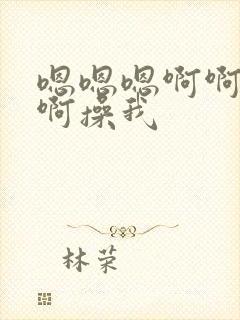 嗯嗯嗯啊啊
啊操我
林荣